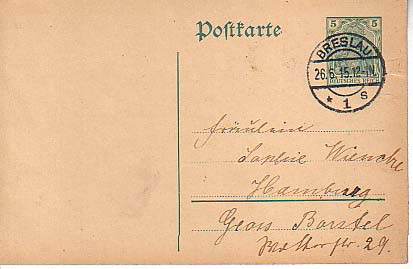 Postkarte
5 5
DEUTSCHES REICH
BRESLAU
26.6.15.12-1N.
* 1 s
Fräulein
Sophie Wiencke
Hamburg
Gross Borstel
29.